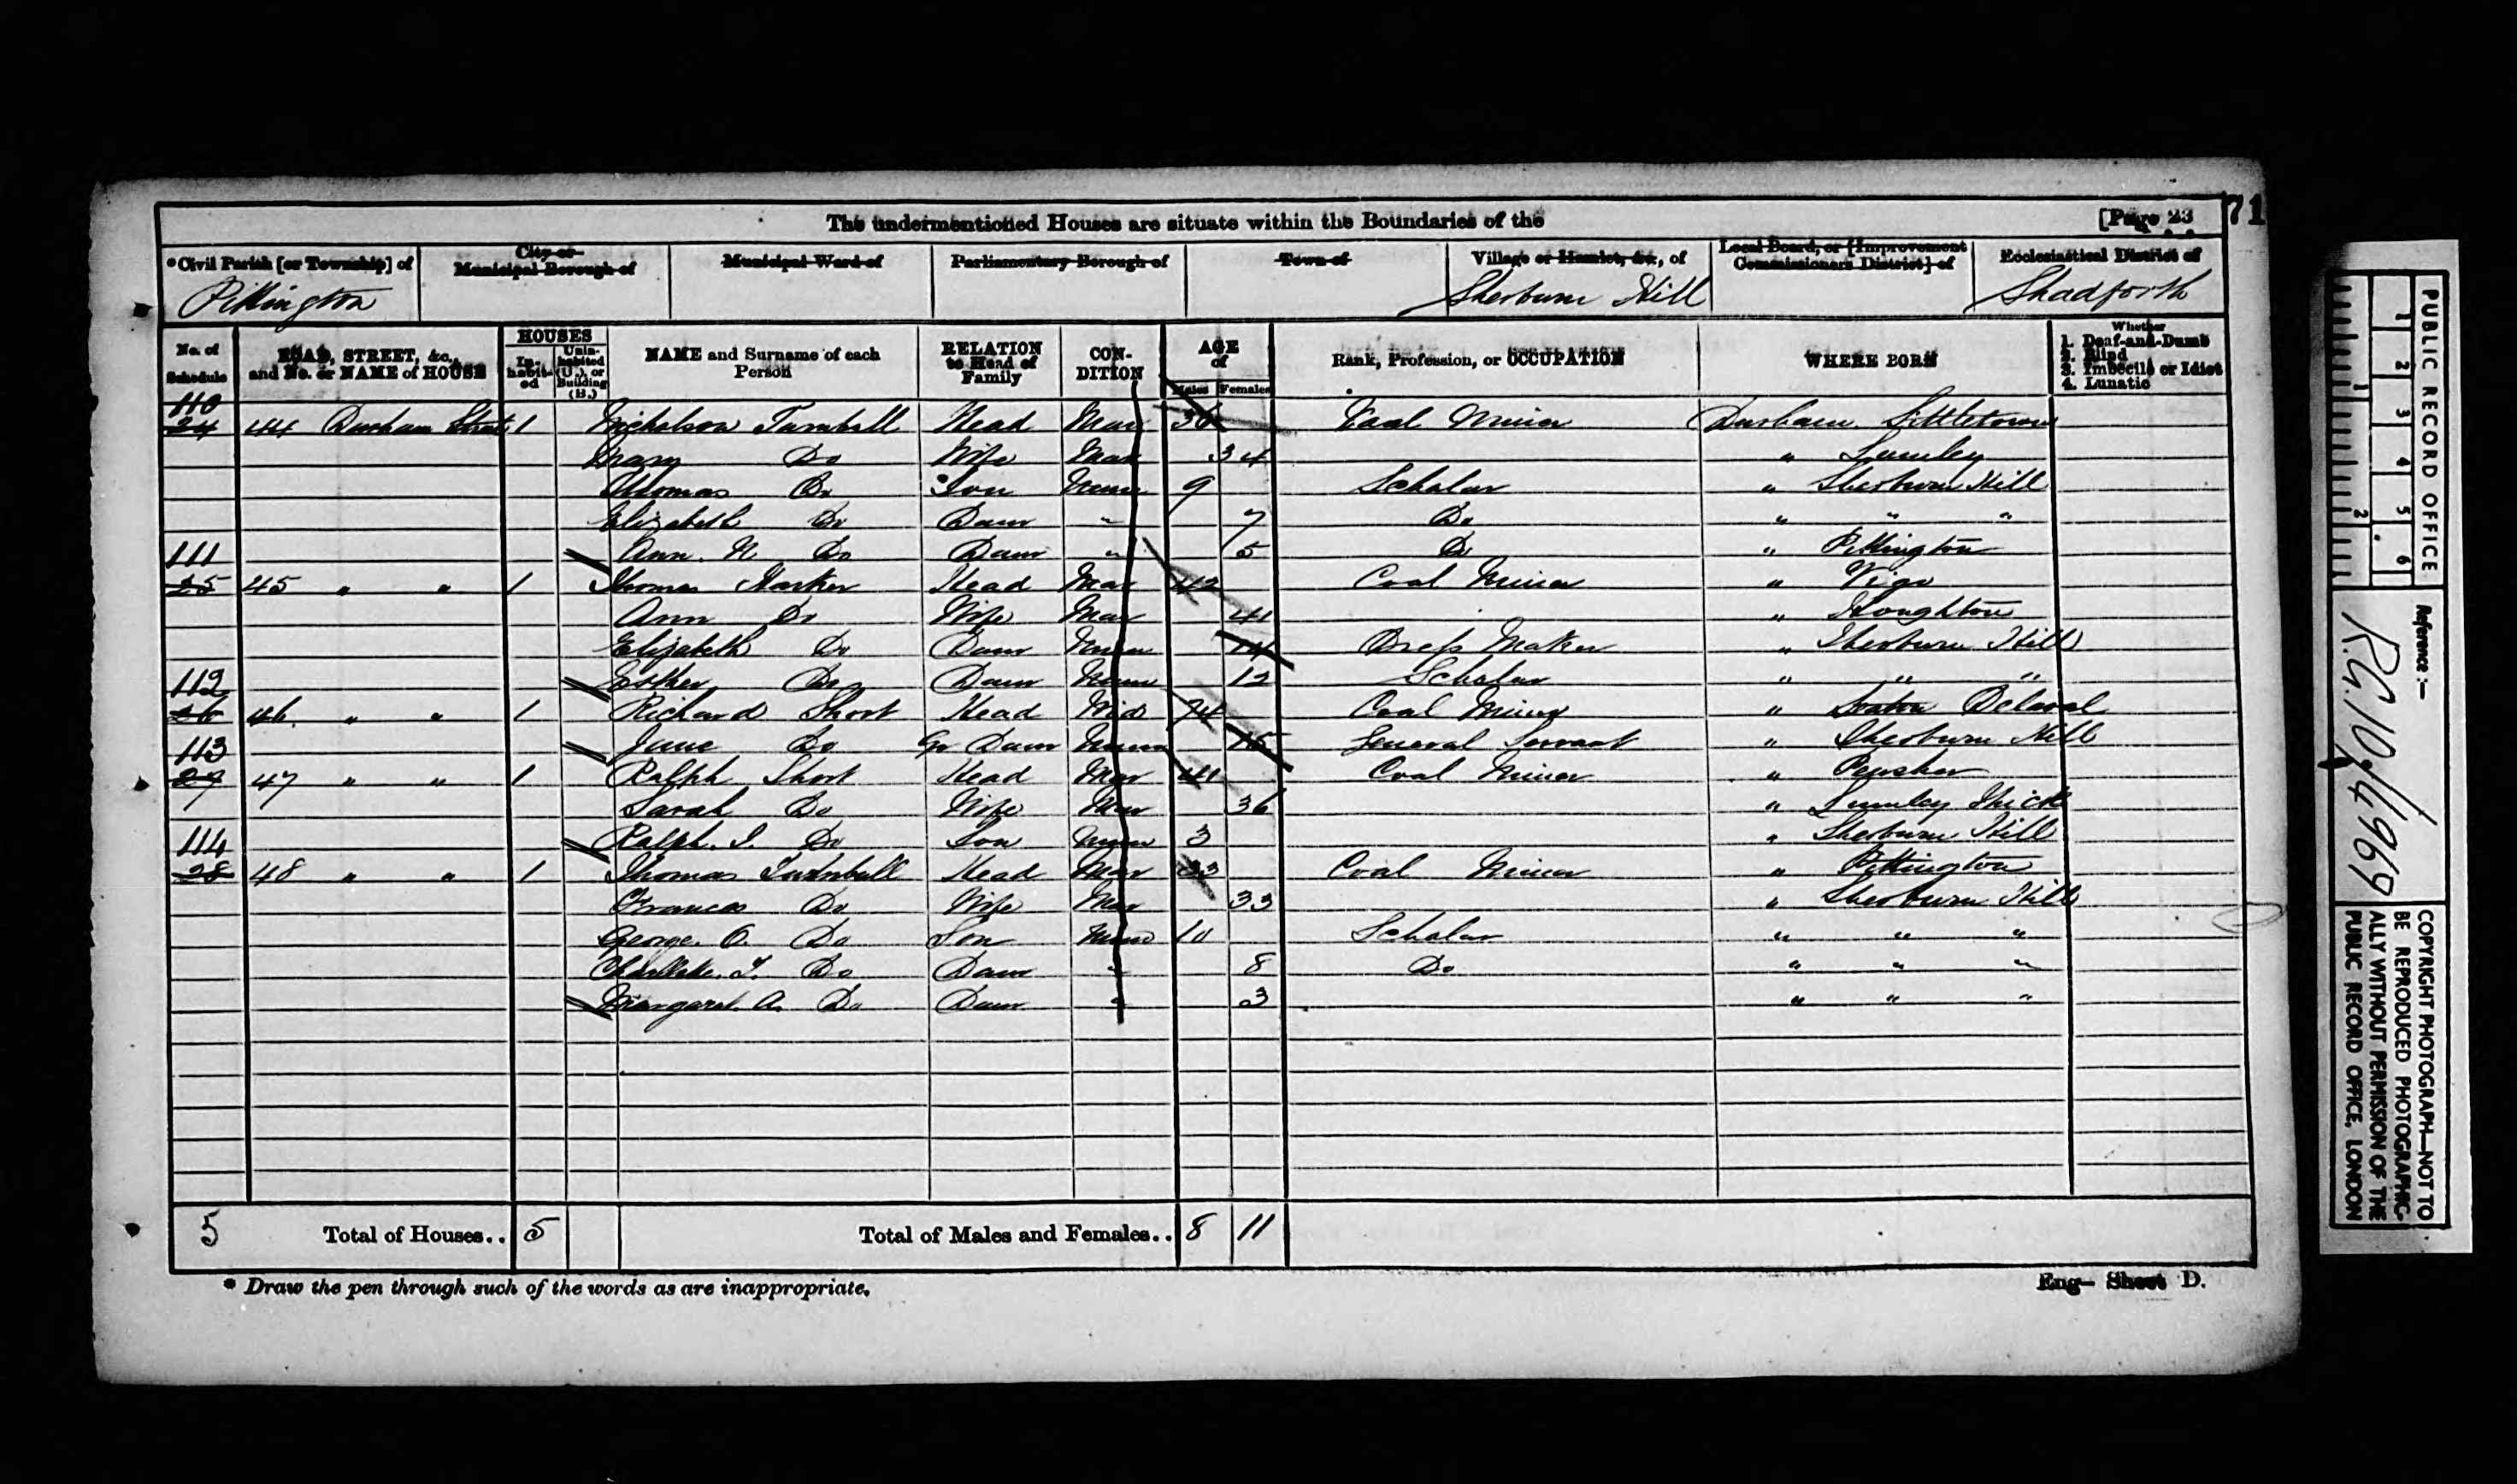 The undermentioned Houses are situate within the Boundaries of the [Page 23 71
*Civil Parish [or Township] of City or Municipal Borough of Municipal Ward of Parliamentary Borough of Town of Village or Hamlet, &c., of Local Board, or [Improvement Commissioners District] of Ecclesiastical District of
Pittington Sherburn Hill Shadforth
No. of Schedule ROAD, STREET, &c., and No. or NAME of HOUSE HOUSES Inhabited Uninhabited (U.), or Building (B.) NAME and Surname of each Person RELATION to Head of Family CONDITION AGE of Males Females Rank, Profession, or OCCUPATION WHERE BORN Whether 1. Deaf-and-Dumb 2. Blind 3. Imbecile or Idiot 4. Lunatic
110
24 44 Durham Street 1 Nicholson Turnball Head Mar 36 Coal Miner Durham Littletown
Mary Do Wife Mar 34 " Lumley
Thomas Do Son Unm 9 Scholar " Sherburn Hill
Elizabeth Do Daur " 7 Do " " "
111 Ann. N. Do Daur " 5 Do " Pittington
25 45 " " 1 Thomas Harker Head Mar 42 Coal Miner " Vigo
Ann Do Wife Mar 41 " Houghton
Elizabeth Do Daur Unm 14 Dress Maker " Sherburn Hill
112 Esther Do Daur Unm 12 Scholar " " "
26 46. " " 1 Richard Short Head Wid 74 Coal Miner " Seaton Delaval
113 Jane Do Gr Daur Unm 15 General Servant " Sherburn Hill
27 47 " " 1 Ralph Short Head Mar 41 Coal Miner " Pensher
Sarah Do Wife Mar 36 " Lumley Thick
114 Ralph. I. Do Son Unm 3 " Sherburn Hill
28 48 " " 1 Thomas Turnbull Head Mar 33 Coal Miner " Pittington
Frances Do Wife Mar 33 " Sherburn Hill
George. O. Do Son Unm 10 Scholar " " "
Charlotte. T. Do Daur " 8 Do " " "
Margaret. A. Do Daur " 3 " " "
5 Total of Houses.. 5 Total of Males and Females.. 8 11
* Draw the pen through such of the words as are inappropriate.
Eng— Sheet D.
1 2 3 4 5 6
1 2
PUBLIC RECORD OFFICE
Reference:—
R.G. 10/4969
COPYRIGHT PHOTOGRAPH—NOT TO
BE REPRODUCED PHOTOGRAPHIC-
ALLY WITHOUT PERMISSION OF THE
PUBLIC RECORD OFFICE, LONDON